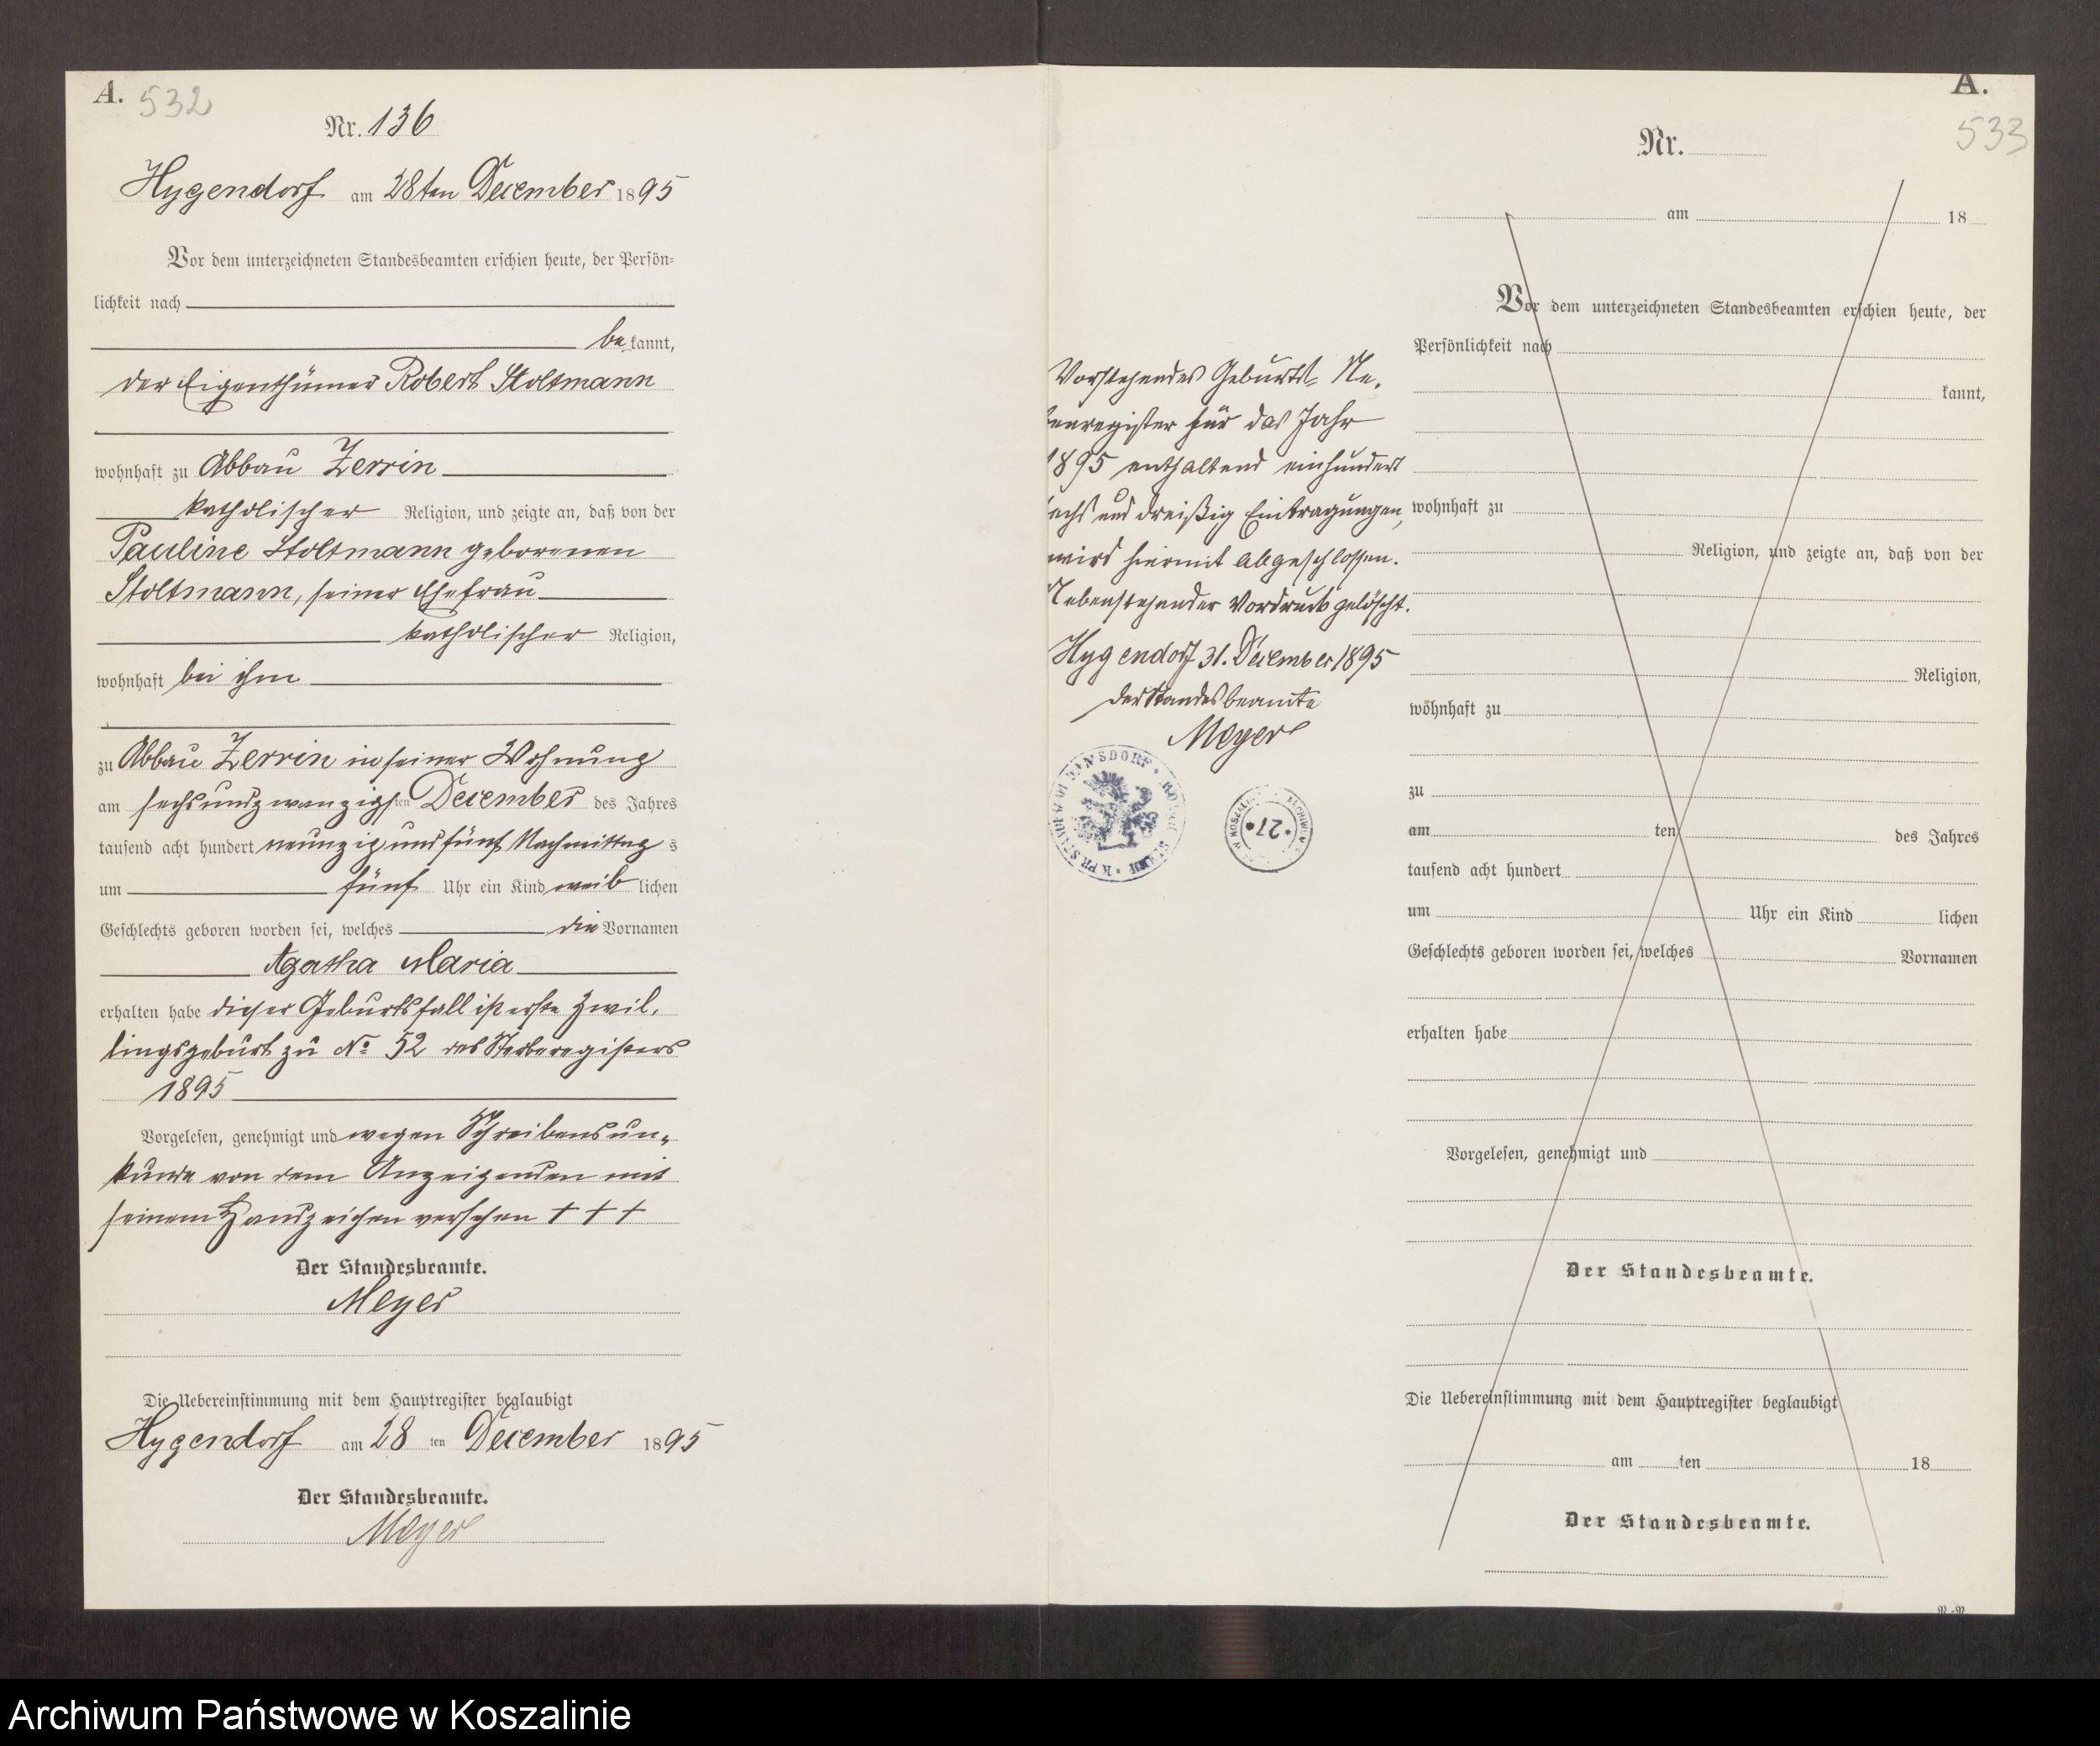 A. 532
Nr. 136
Hygendorf am 28ten December 1895
Vor dem unterzeichneten Standesbeamten erschien heute, der Persön=
lichkeit nach
be kannt,
der Eigenthümer Robert Stoltmann
wohnhaft zu Abbau Zerrin
katholischer Religion, und zeigte an, daß von der
Pauline Stoltmann geborenen
Stoltmann, seiner Ehefrau
katholischer Religion,
wohnhaft bei ihm
zu Abbau Zerrin in seiner Wohnung
am sechsundzwanzigsten December des Jahres
tausend acht hundert neunzig und fünf Nachmittag s
um fünf Uhr ein Kind weib lichen
Geschlechts geboren worden sei, welches die Vornamen
Agatha Maria
erhalten habe dieser Geburtsfall ist erste Zwil,
lingsgeburt zu No 52 des Sterberegisters
1895
Vorgelesen, genehmigt und wegen Schreibensun„
kunde von dem Anzeigenden mit
seinem Handzeichen versehen + + +
Der Standesbeamte.
Meyer
Die Uebereinstimmung mit dem Hauptregister beglaubigt
Hygendorf am 28 ten December 1895
Der Standesbeamte.
Meyer
Vorstehendes Geburts= Ne,
benregister für das Jahr
1895 enthaltend einhundert
sechs und dreißig Eintragungen,
wird hiermit abgeschlossen.
Nebenstehender Vordruck gelöscht.
Hygendorf 31. December 1895
der Standesbeamte
Meyer
*27*
A.
533
Nr.
am 18
Vor dem unterzeichneten Standesbeamten erschien heute, der
Persönlichkeit nach
kannt,
wohnhaft zu
Religion, und zeigte an, daß von der
Religion,
wohnhaft zu
zu
am ten des Jahres
tausend acht hundert
um Uhr ein Kind lichen
Geschlechts geboren worden sei, welches Vornamen
erhalten habe
Vorgelesen, genehmigt und
Der Standesbeamte.
Die Uebereinstimmung mit dem Hauptregister beglaubigt
am ten 18
Der Standesbeamte.
Archiwum Państwowe w Koszalinie